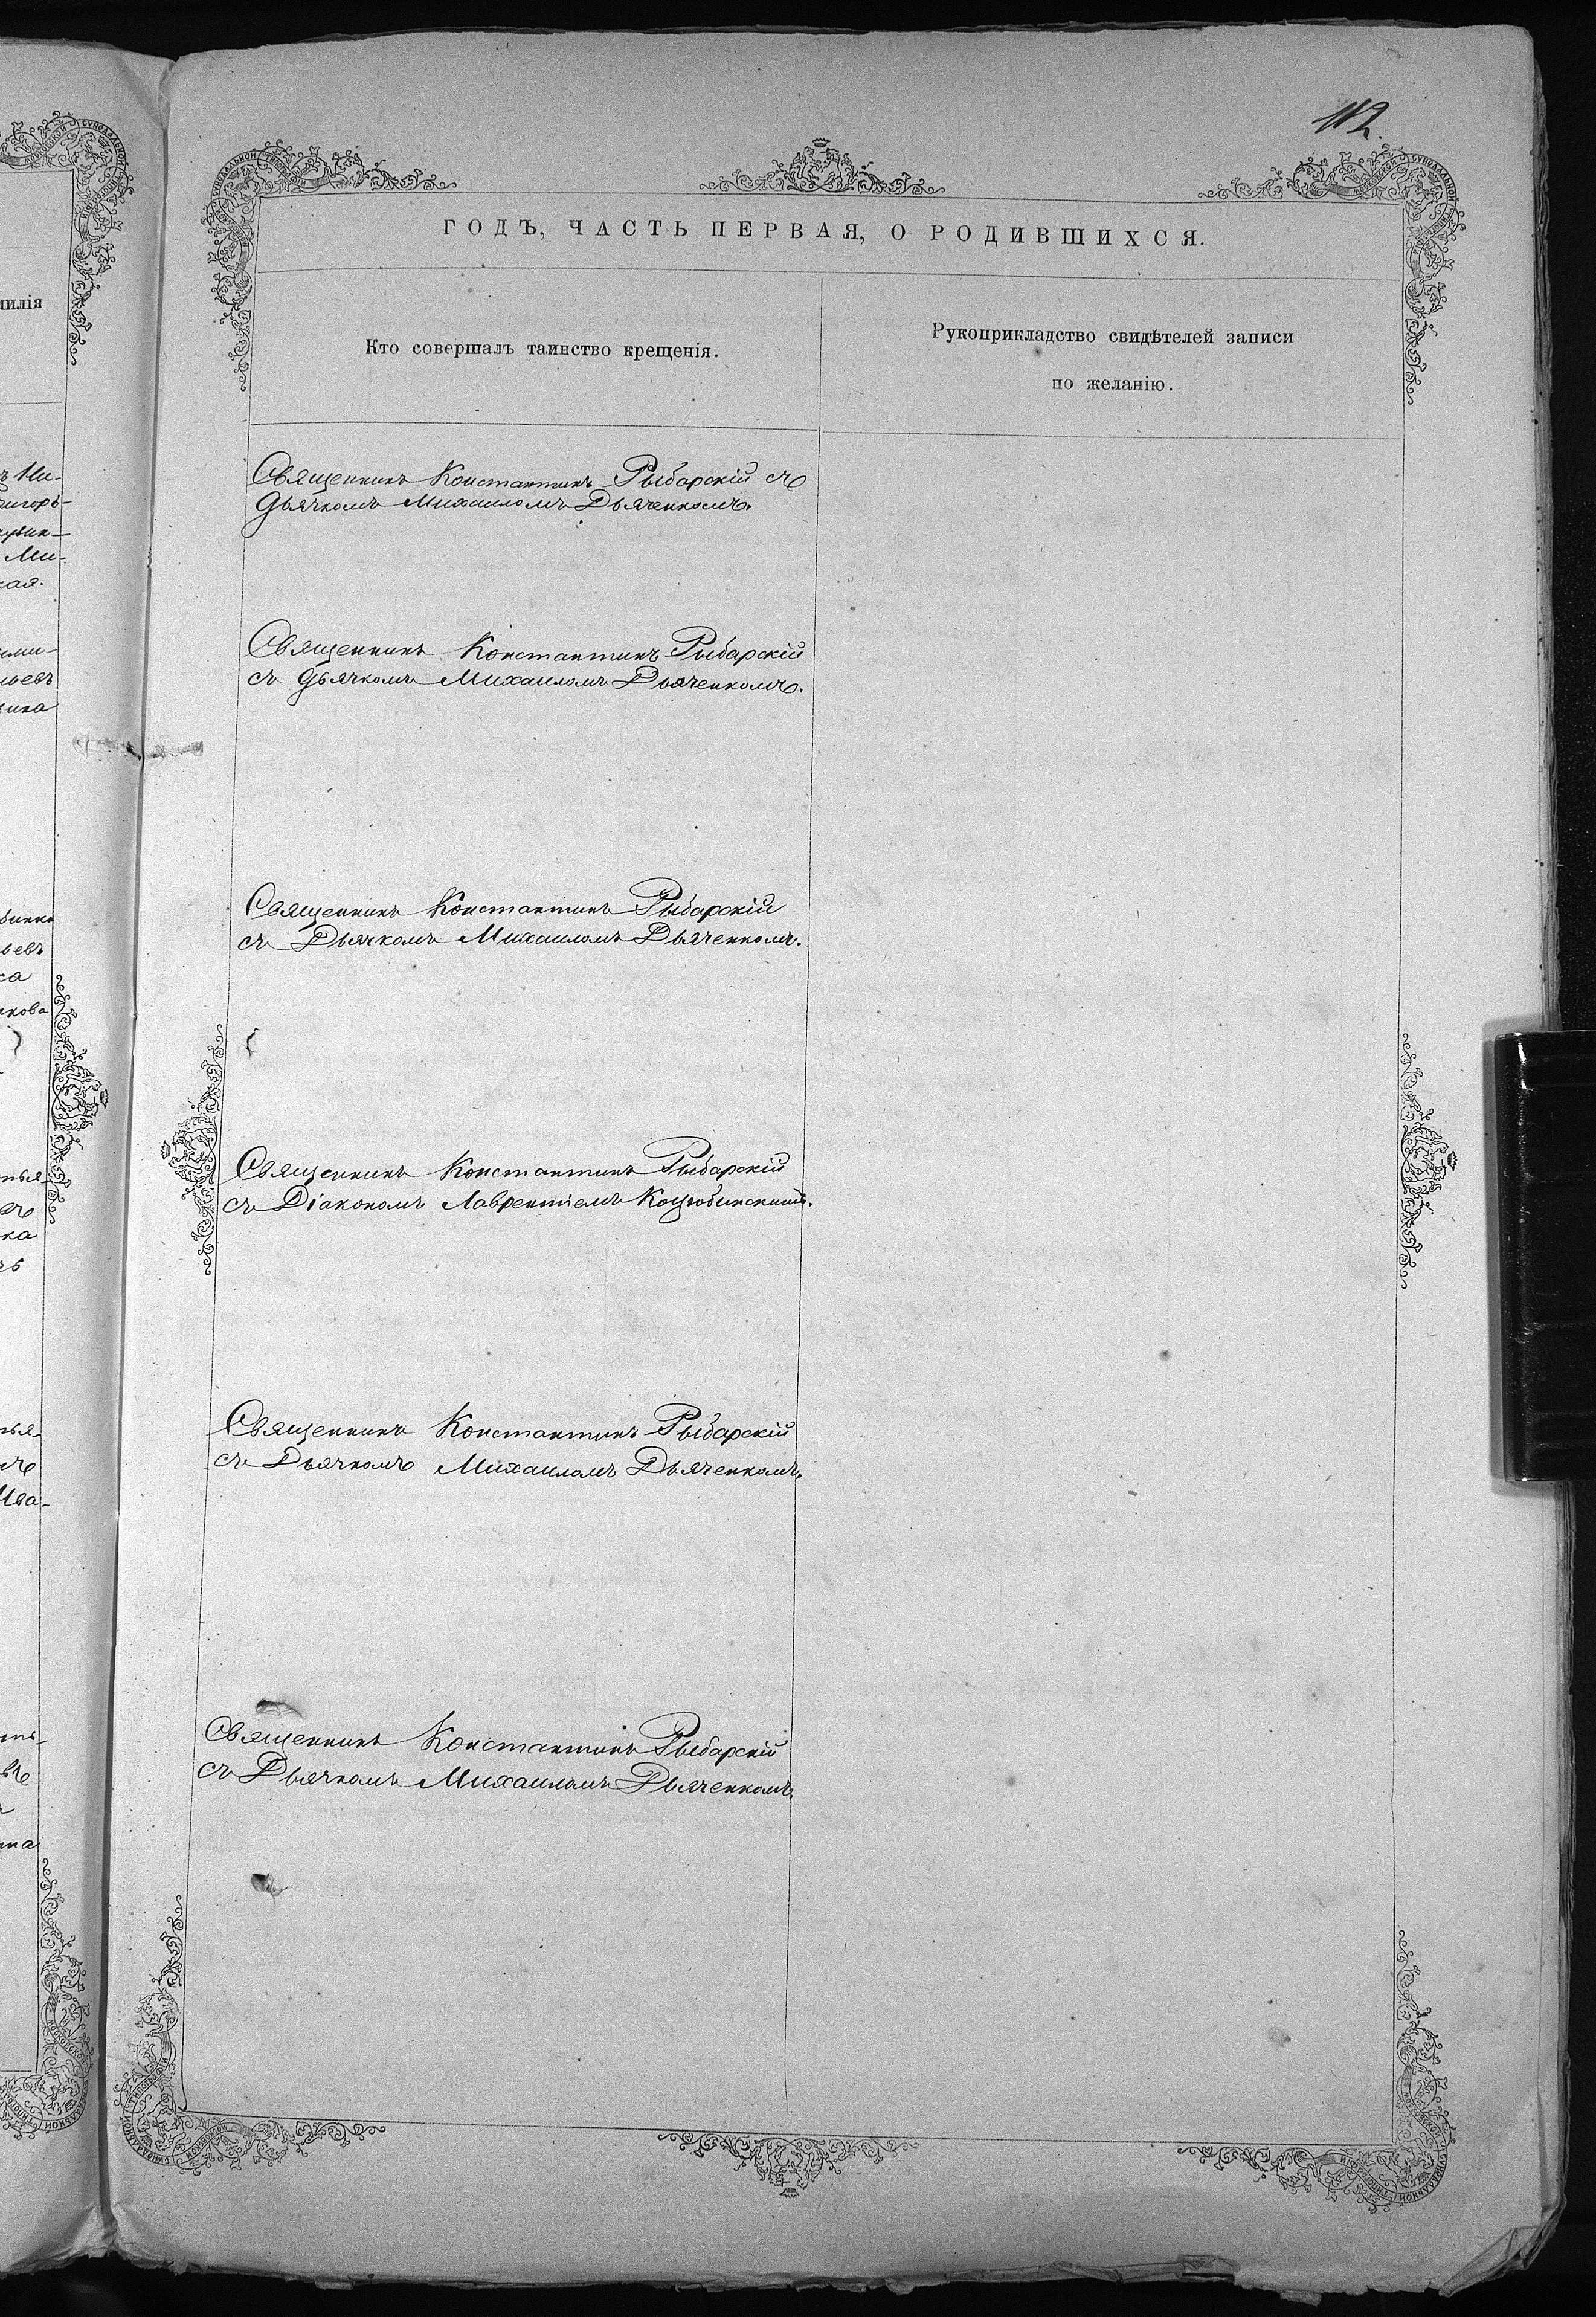 112.
ГОДЪ, ЧАСТЬ ПЕРВАЯ, О РОДИВШИХСЯ.
Кто совершалъ таинство крещенія.
Рукоприкладство свидѣтелей записи
по желанію.
Священникъ Константинъ Рыбарскій съ
дьячкомъ Михаиломъ Дьяченкомъ.
Священникъ Константинъ Рыбарскій
съ дьячкомъ Михаиломъ Дьяченкомъ.
Священникъ Константинъ Рыбарскій
съ Дьячкомъ Михаиломъ Дьяченкомъ.
Священникъ Константинъ Рыбарскій
съ Діакономъ Лаврентіемъ Коцюбинскимъ.
Священникъ Константинъ Рыбарскій
съ Дьячкомъ Михаиломъ Дьяченкомъ.
Священникъ Константинъ Рыбарскій
съ Дьячкомъ Михаиломъ Дьяченкомъ.